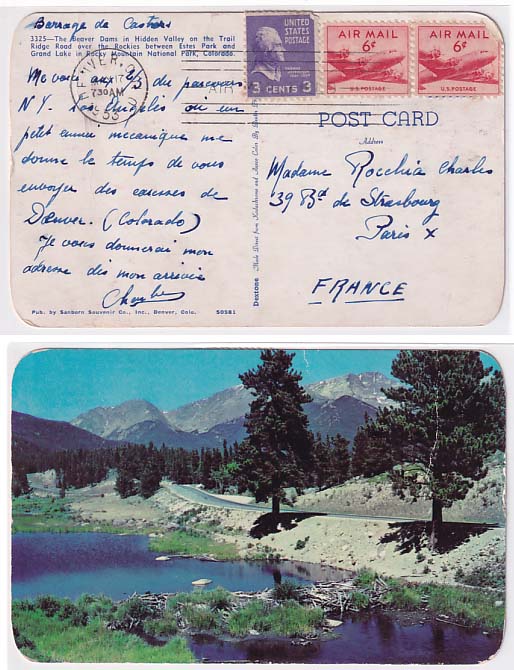 Barrage de Castors
3325—The Beaver Dams in Hidden Valley on the Trail
Ridge Road over the Rockies between Estes Park and
Grand Lake in Rocky Mountain National Park, Colorado.
Me voici aux 2/3 du parcours
N.Y. Los Angeles où un
petit ennui mécanique me
donne le temps de vous
envoyer des caresses de
Denver. (Colorado)
Je vous donnerai mon
adresse dès mon arrivée
Pub. by Sanborn Souvenir Co., Inc., Denver, Colo. 50581
DENVER, COLO.
17
730 AM
1953
AIR
UNITED
STATES
POSTAGE
3 CENTS 3
AIR MAIL
6¢
U.S. POSTAGE
AIR MAIL
6¢
U.S. POSTAGE
Dextone Made Direct from Kodachrome and Ansco Color By
POST CARD
Address
Madame Rocchia Charles
39 Bd de Strasbourg
Paris X
FRANCE